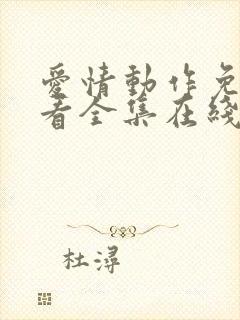 愛情動作免
看全集在綫
杜潯